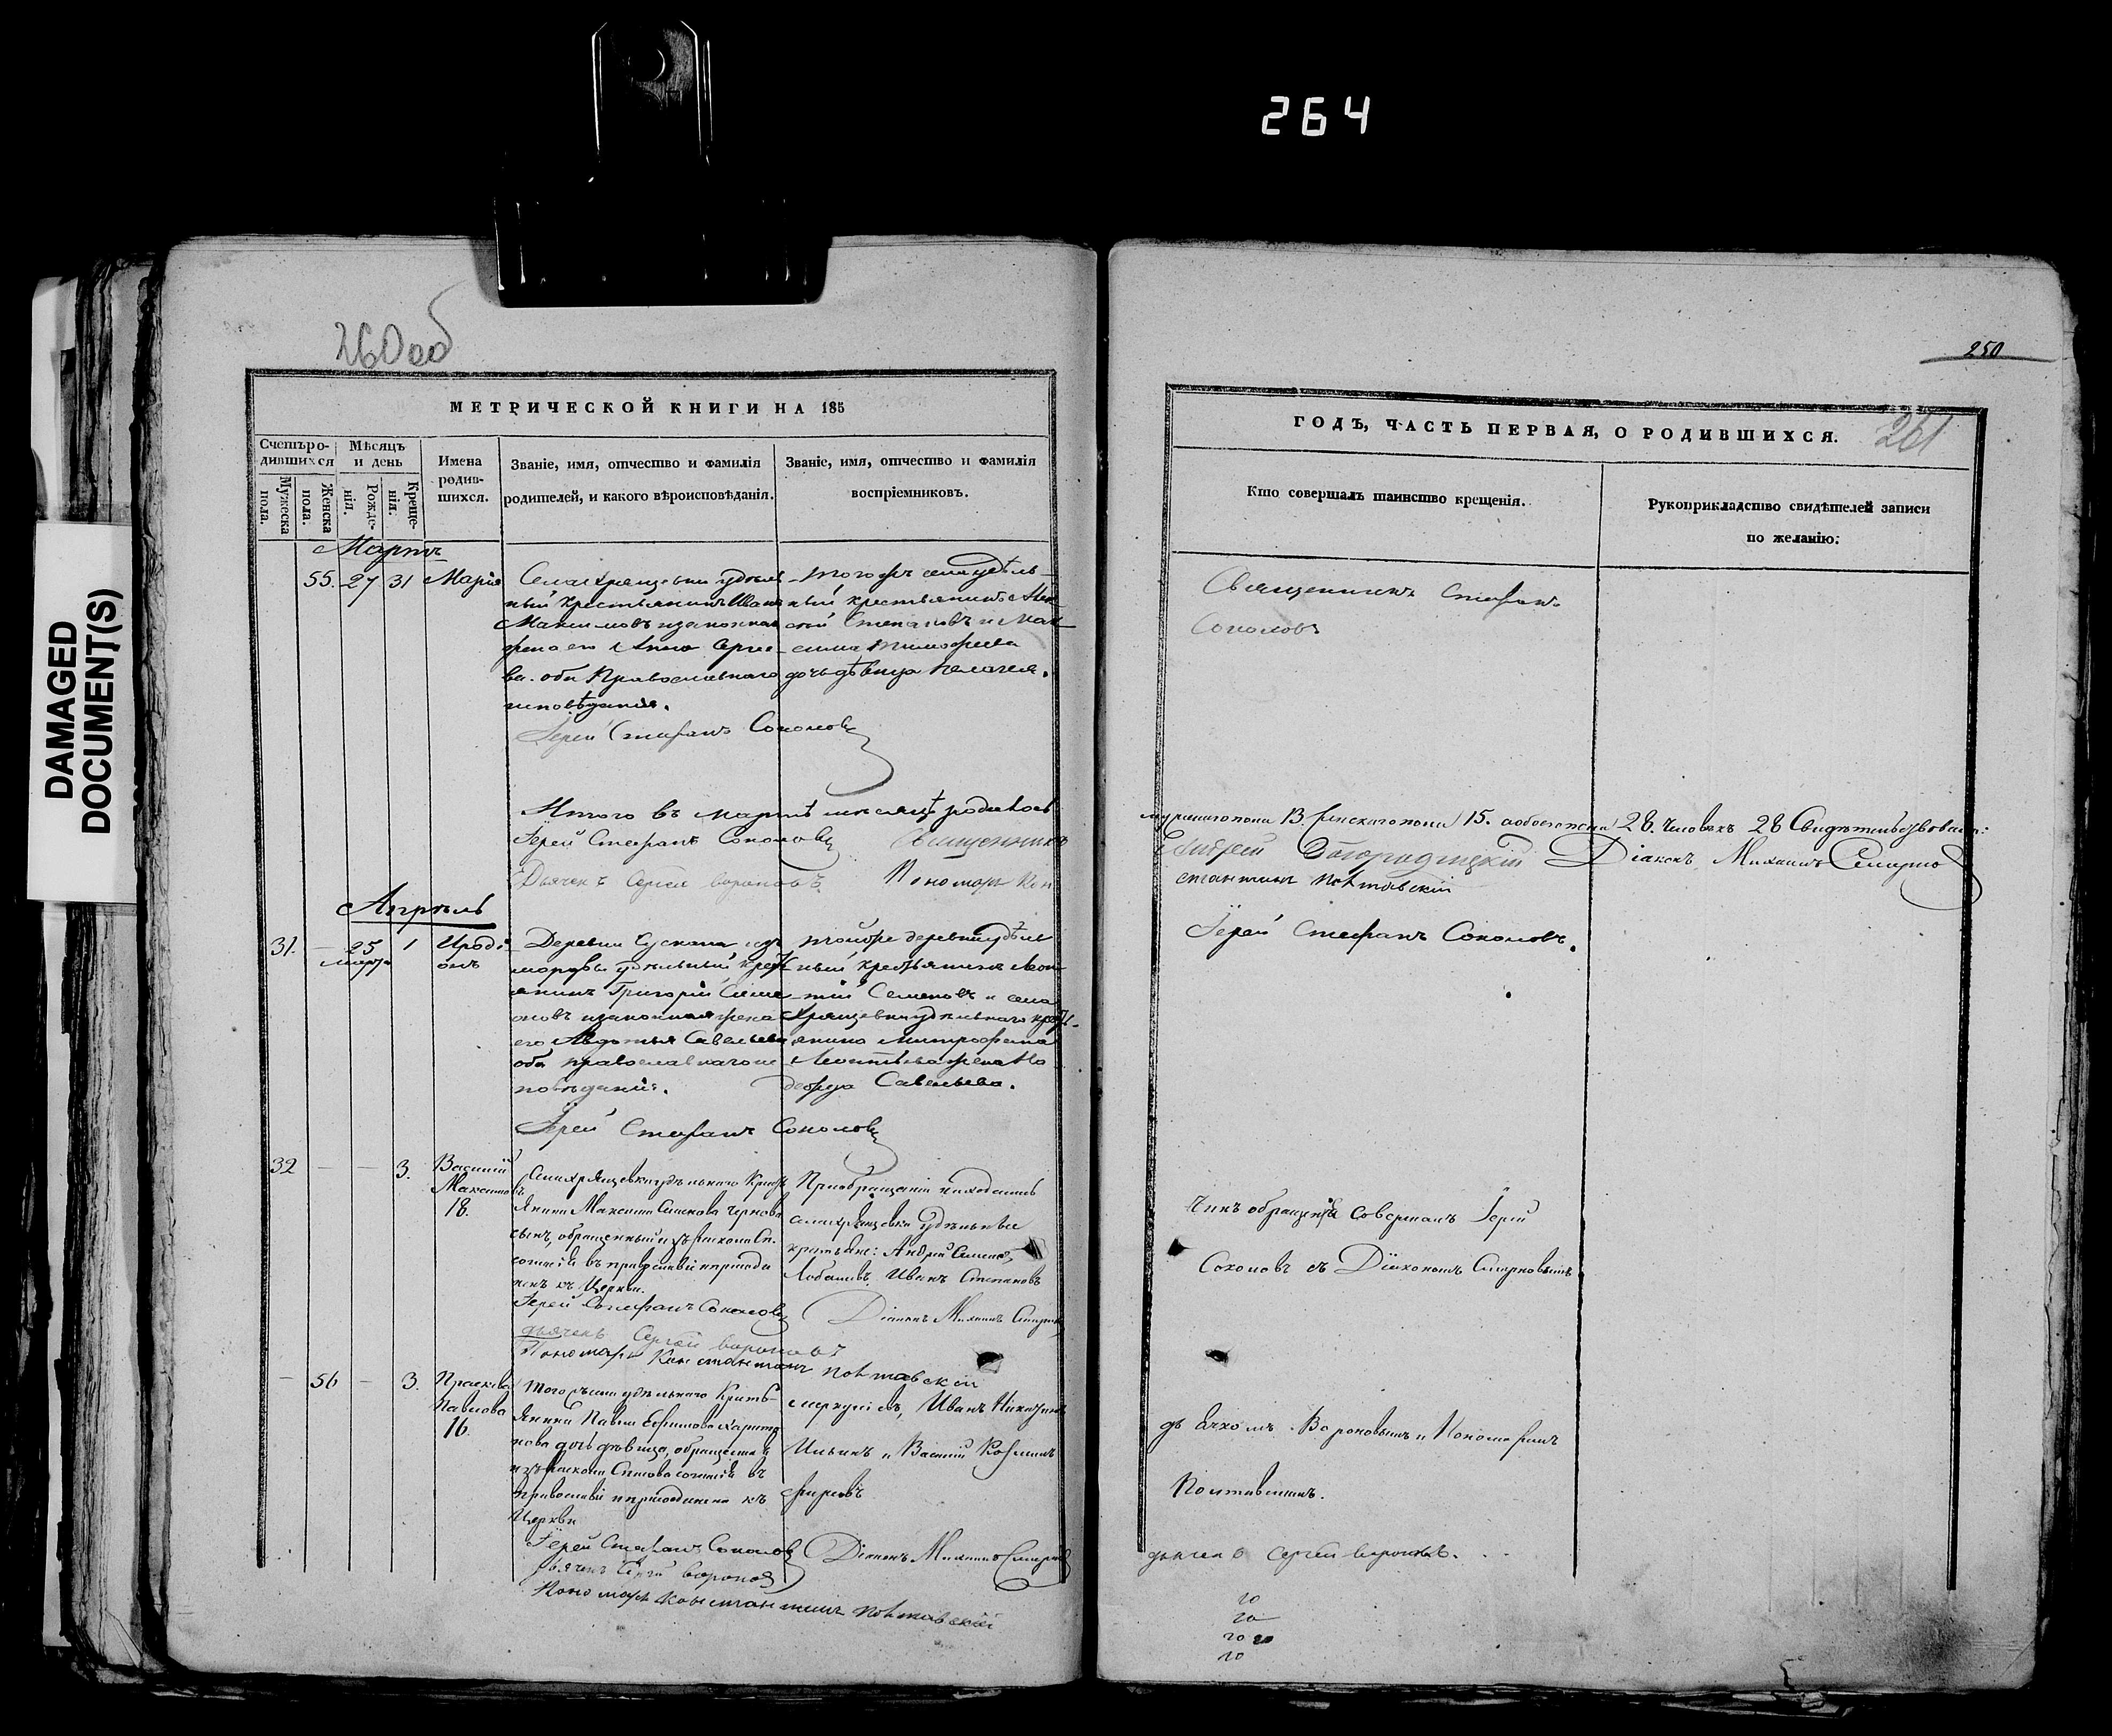 264
DAMAGED
DOCUMENT(S)
260 об
МЕТРИЧЕСКОЙ КНИГИ НА 185
Счетъ ро-
дившихся
Мѣсяцъ
и день
Имена
родив-
шихся.
Званіе, имя, отчество и фамилія
родителей, и какого вѣроисповѣданія.
Званіе, имя, отчество и фамилія
воспріемниковъ.
Мужеска
пола.
Женска
пола.
Рожде-
нія.
Креще-
нія.
Мартъ
55. 27 31 Марія
Села Хрящевки удѣль
ный крестьянинъ Иванъ
Максимовъ и законная
жена его Анна Сергее
ва. оба Православнаго
исповѣданія.
Іерей Стефанъ Соколовъ
тогожъ села удѣль-
ный крестьянинъ
Степановъ и Мак
сима Тимофеева
дочь дѣвица Пелагея.
Итого въ мартѣ месяцѣ родилось
Іерей Стефанъ Соколовъ Священникъ
Дьячекъ Сергей Вороновъ Пономарь Кон
Апрѣль
31. — 25 1 Иродi
марта онъ
Деревни Сускана
удѣльный крестъ
янинъ Григорій Симе
оновъ и законная жена
его Авдотья Савельева
оба православнаго ис
повѣданія.
тойже деревни удѣль
ный крестьянинъ Леон
тій Семеновъ и села
Хрящевки удѣльнаго кресть-
янина Митрофана
Леонтьева жена На
дежда Савельева.
Іерей Стефанъ Соколовъ
32 — — 3. Василій
Максимовъ
18.
Села Хрящевки удѣльнаго Кресть
янина Максима Семенова Чернова
сынъ, обращенный изъ раскола Сп.
согласія въ православіе и присоеди
ненъ къ Церкви.
Іерей Стефанъ Соколовъ
дьячекъ Сергей Вороновъ
Пономарь Константинъ Полтавскій
При обращеніи находились
села Хрящевки удѣльные
крестьяне: Андрей Семенов,
Лобановъ, Иванъ Степановъ
Діаконъ Михаилъ Смирновъ
— 56 — 3. Прасковья
Павлова
16.
Того жъ села удѣльнаго Кресть-
янина Павла Ефимова Харито
нова дочь дѣвица, обращенная
изъ раскола Спасова согласія въ
православіе и присоединена къ
Церкви
Іерей Стефанъ Соколовъ
дьячекъ Сергей Вороновъ
Пономарь Константинъ Полтавскій
Меркуловъ, Иванъ Никитинъ
Ильинъ и Василій Козминъ
Діаконъ Михаилъ Смирновъ
250
261
ГОДЪ, ЧАСТЬ ПЕРВАЯ, О РОДИВШИХСЯ.
Кто совершалъ таинство крещенія.
Рукоприкладство свидѣтелей записи
по желанію.
Священникъ Стефанъ
Соколовъ
мужескаго пола 13. женскаго пола 15. а обоего пола 28. Человѣкъ 28 Свидѣтельствовали:
Андрей Богородицкій Діаконъ Михаилъ Смирнов
стантинъ Полтавскій
Іерей Стефанъ Соколовъ.
Чинъ обращенія совершалъ Іерей
Соколовъ съ Діакономъ Смирновымъ
дьячкомъ Вороновымъ и Пономаремъ
Полтавскимъ.
дьячекъ Сергей Вороновъ.
20
20
20 20
20